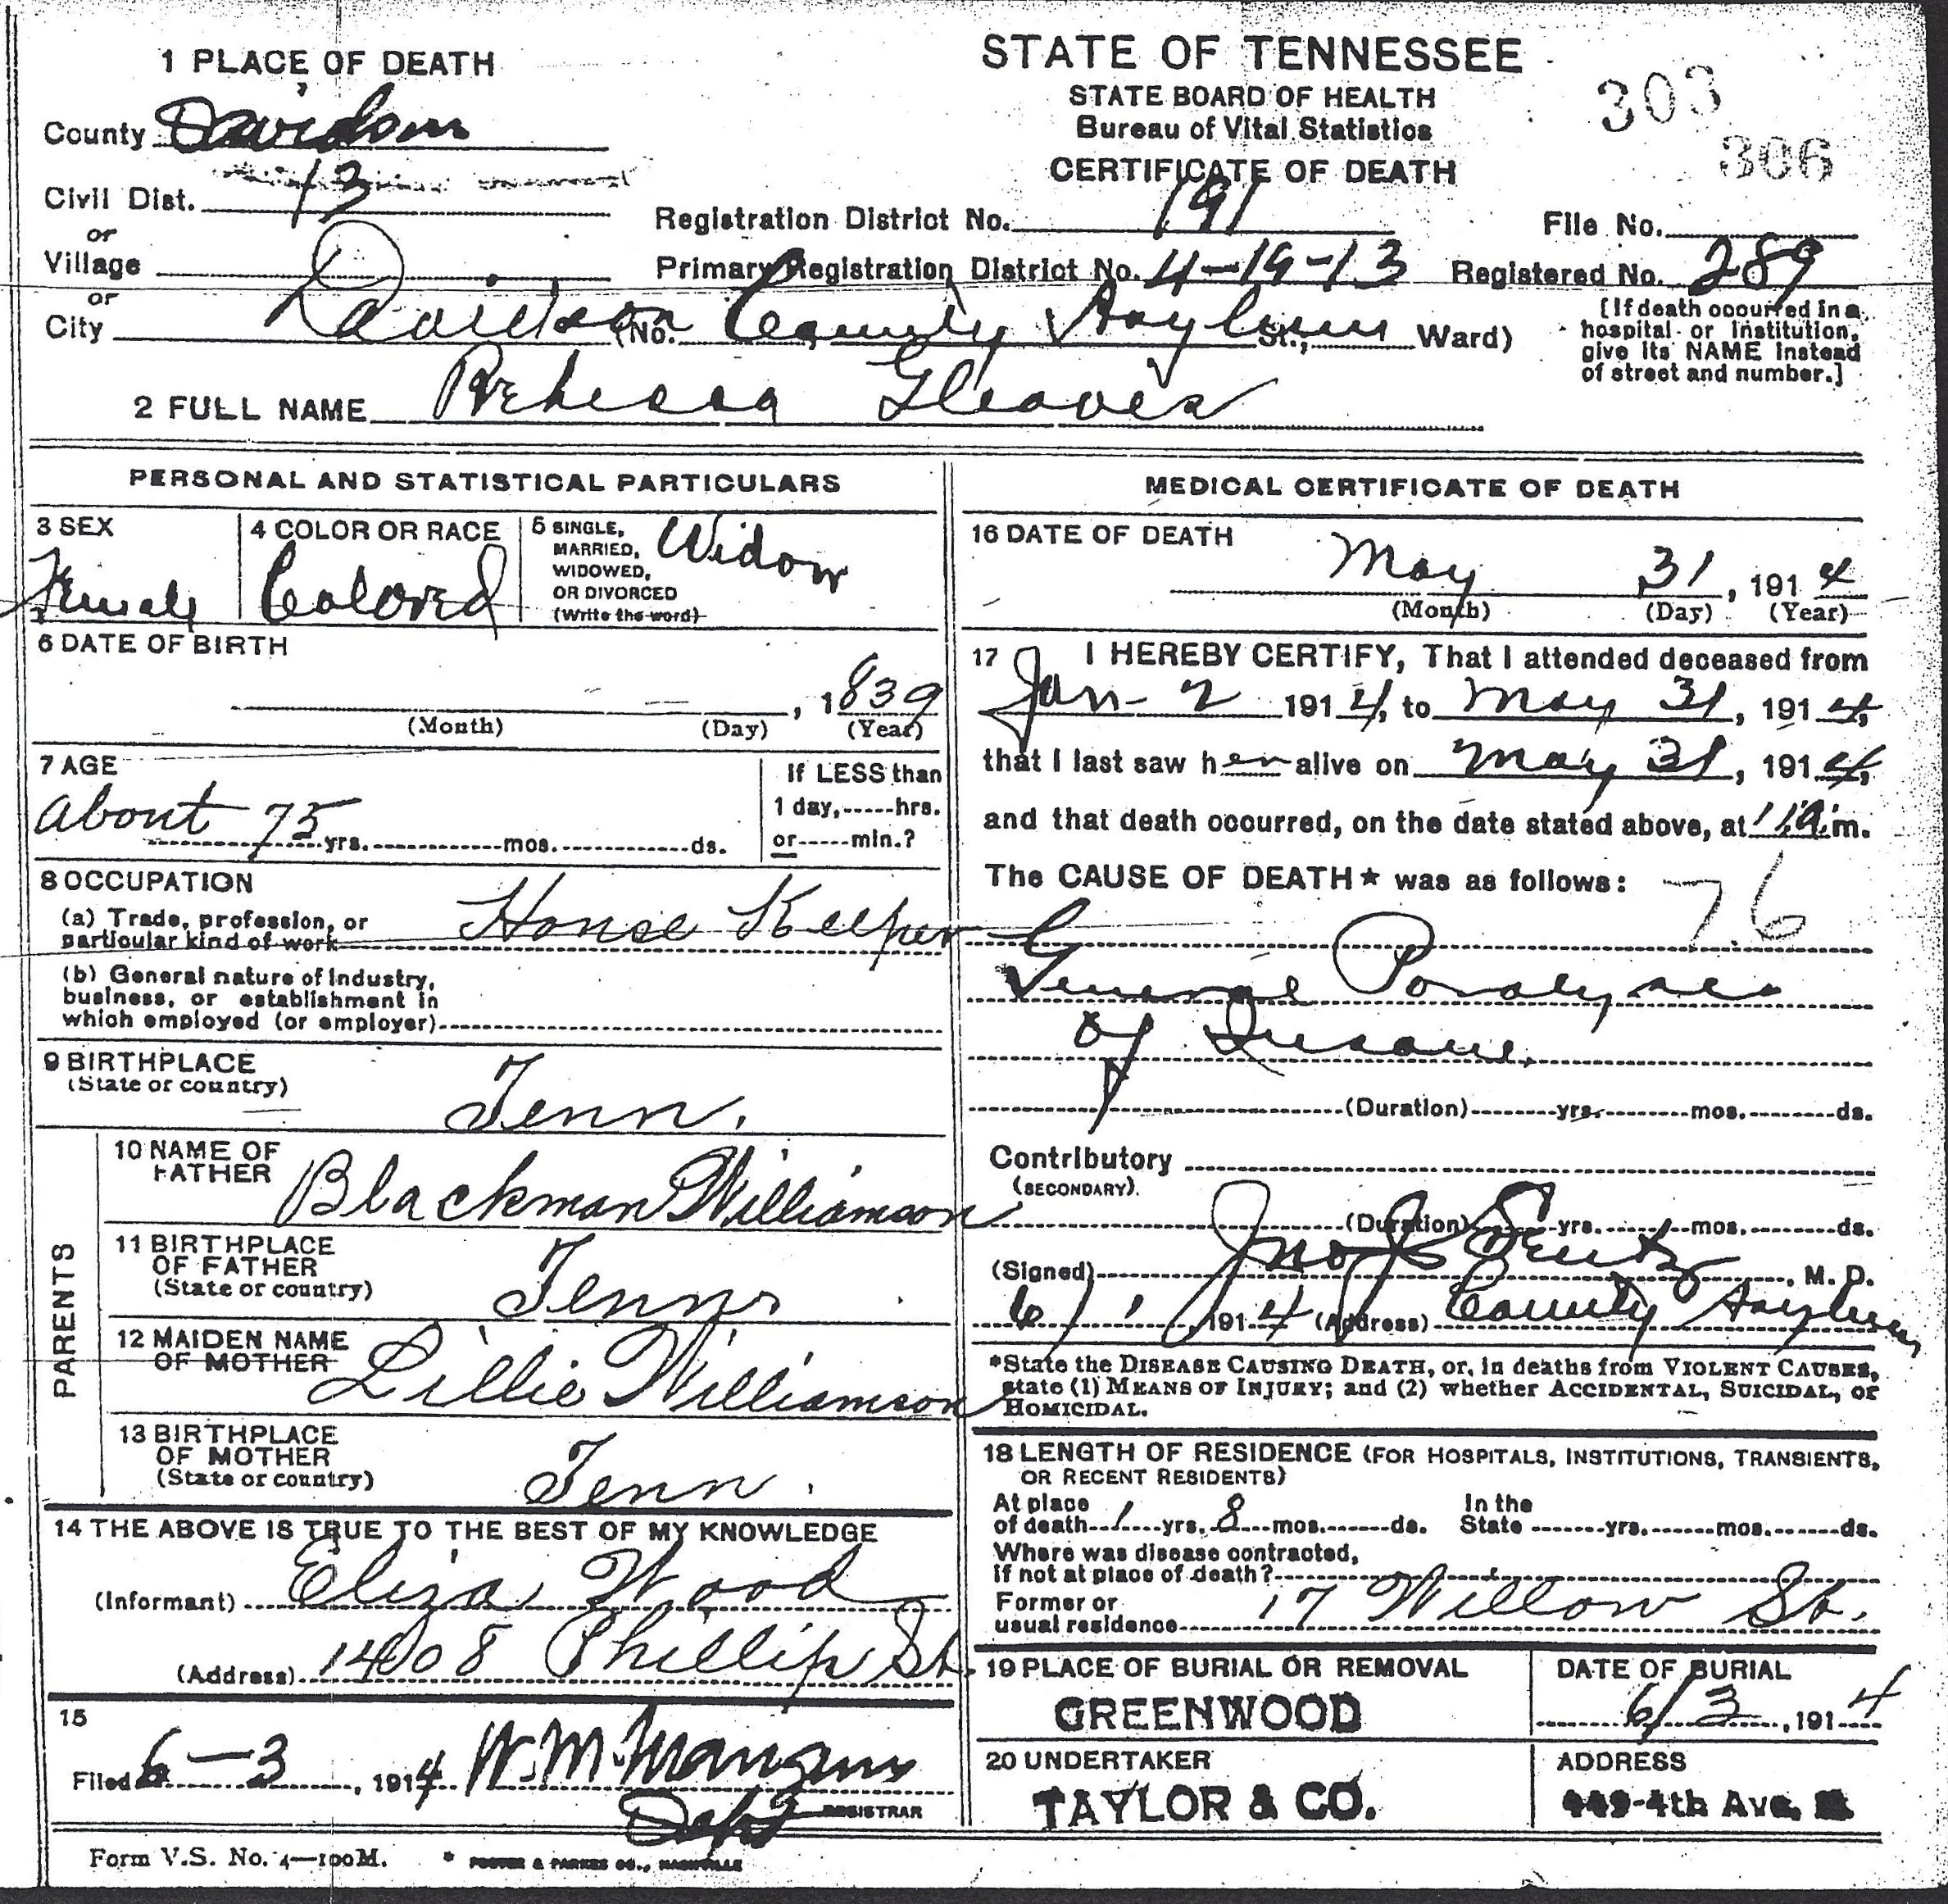 1 PLACE OF DEATH
County Davidson
Civil Dist. 13
or
Village
or
City Davidson (No. County Asylum St., Ward)
STATE OF TENNESSEE
STATE BOARD OF HEALTH
Bureau of Vital Statistics
CERTIFICATE OF DEATH
303
306
Registration District No. 191 File No.
Primary Registration District No. 4-19-13 Registered No. 289
[If death occurred in a
hospital or institution,
give its NAME instead
of street and number.]
2 FULL NAME Rebecca Gleaves
PERSONAL AND STATISTICAL PARTICULARS
3 SEX
Female
4 COLOR OR RACE
Colored
5 SINGLE,
MARRIED,
WIDOWED,
OR DIVORCED
(Write the word)
Widow
6 DATE OF BIRTH
, 1839
(Month) (Day) (Year)
7 AGE
About 75 yrs. mos. ds.
If LESS than
1 day, hrs.
or min.?
8 OCCUPATION
(a) Trade, profession, or
particular kind of work House Keeper
(b) General nature of Industry,
business, or establishment in
which employed (or employer)
9 BIRTHPLACE
(State or country)
Tenn.
PARENTS
10 NAME OF
FATHER
Blackman Williamson
11 BIRTHPLACE
OF FATHER
(State or country)
Tenn
12 MAIDEN NAME
OF MOTHER
Lillie Williamson
13 BIRTHPLACE
OF MOTHER
(State or country)
Tenn.
14 THE ABOVE IS TRUE TO THE BEST OF MY KNOWLEDGE
(Informant) Eliza Wood
(Address) 1408 Phillip St.
15
Filed 6-3, 1914 W. M. Mangum
Dept REGISTRAR
MEDICAL CERTIFICATE OF DEATH
16 DATE OF DEATH
May 31, 1914
(Month) (Day) (Year)
17 I HEREBY CERTIFY, That I attended deceased from
Jan- 2 1914, to May 31, 1914,
that I last saw her alive on May 31, 1914,
and that death occurred, on the date stated above, at m.
The CAUSE OF DEATH* was as follows: 76
General Paralysis
of Insane.
(Duration) yrs. mos. ds.
Contributory
(SECONDARY)
(Duration) yrs. mos. ds.
(Signed) Jno , M. D.
6/1, 1914 (Address) County Asylum
*State the DISEASE CAUSING DEATH, or, in deaths from VIOLENT CAUSES,
state (1) MEANS OF INJURY; and (2) whether ACCIDENTAL, SUICIDAL, or
HOMICIDAL.
18 LENGTH OF RESIDENCE (FOR HOSPITALS, INSTITUTIONS, TRANSIENTS,
OR RECENT RESIDENTS)
At place
of death 1 yrs. 8 mos. ds.
In the
State yrs. mos. ds.
Where was disease contracted,
if not at place of death?
Former or
usual residence 17 Willow St.
19 PLACE OF BURIAL OR REMOVAL
GREENWOOD
DATE OF BURIAL
6/3, 1914
20 UNDERTAKER
TAYLOR & CO.
ADDRESS
449-4th Ave.
Form V.S. No. 4—100M. * FOSTER & PARKES CO., NASHVILLE